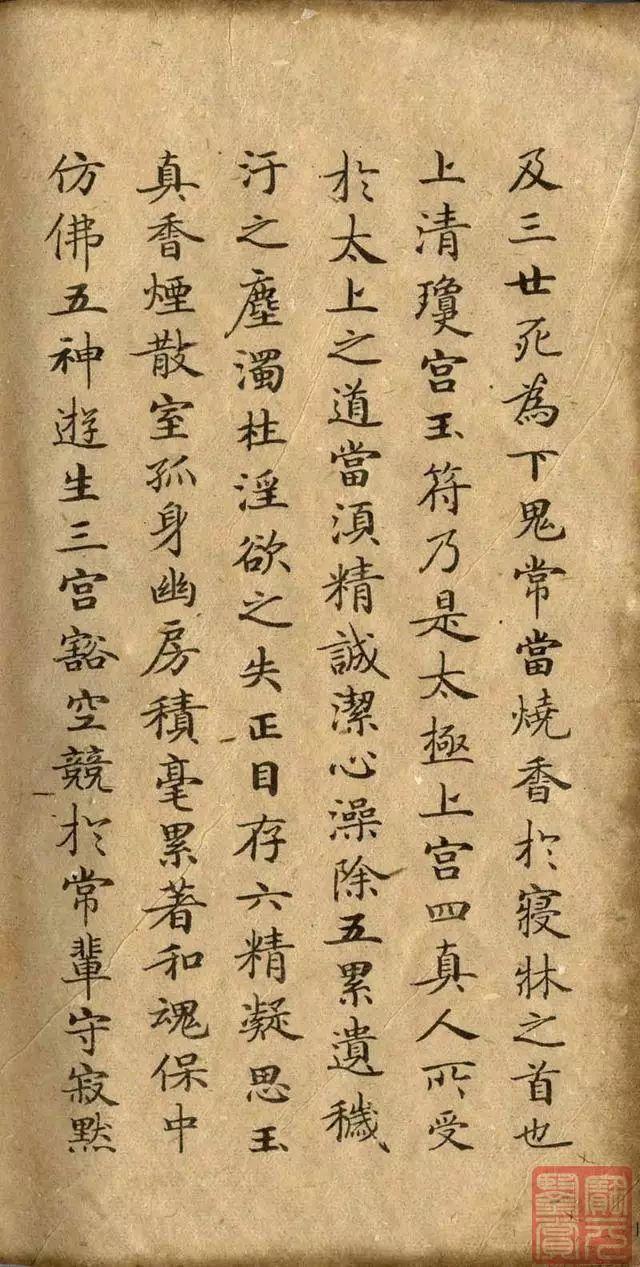 及三世死為下鬼常當燒香於寢牀之首也
上清瓊宮玉符乃是太極上宮四真人所受
於太上之道當須精誠潔心澡除五累遺穢
汙之塵濁杜淫欲之失正目存六精凝思玉
真香煙散室孤身幽房積毫累著和魂保中
仿佛五神遊生三宮豁空競於常輩守寂默